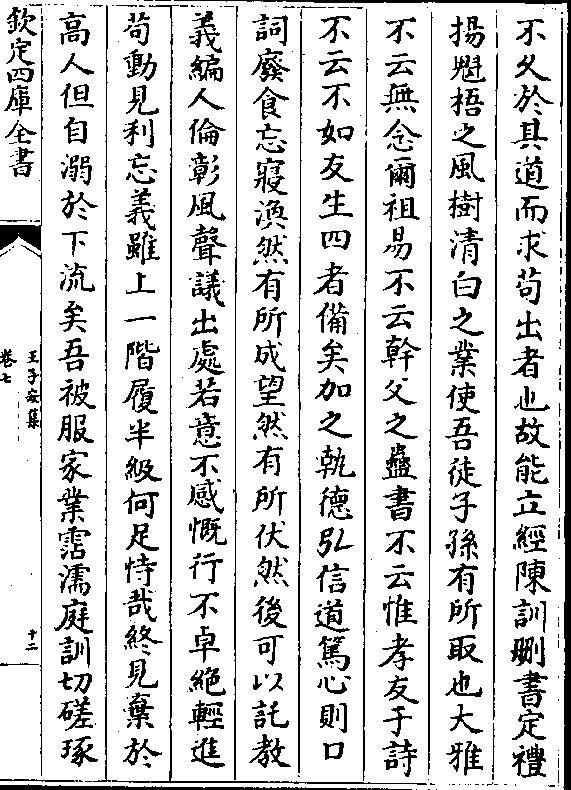 不久於其道而求苟出者也故能立經陳訓刪書定禮
揚魁梧之風樹清白之業使吾徒子孫有所取也大雅
不云無念爾祖易不云幹父之蠱書不云惟孝友于詩
不云不如友生四者備矣加之執德弘信道篤心則口
詞廢食忘寢渙然有所成望然有所伏然後可以託教
義編人倫彰風聲議出處若意不感慨行不卓絕輕進
苟動見利忘義雖上一階履半級何足恃哉終見棄於
高人但自溺於下流矣吾被服家業霑濡庭訓切磋琢
欽定四庫全書
王子安集
卷七
十二